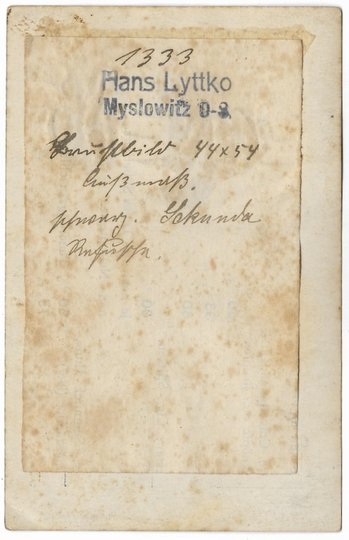 1333
Hans Lyttko
Myslowitz O-S.
Brustbild 44x54
Außmaß.
schwarz. Sekunda
Retusche.